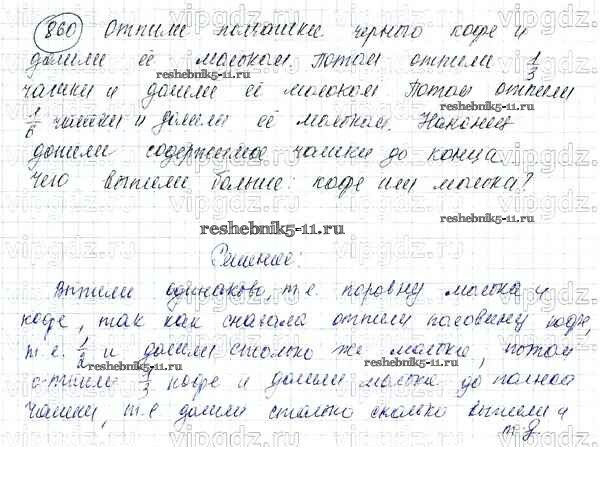 860 Отпили полчашки черного кофе и
долили её молоком. Потом отпили 1/3
чашки и долили её молоком. Потом отпили
1/6 чашки и долили её молоком. Наконец
допили содержимое чашки до конца.
Чего выпили больше: кофе или молока?
reshebnik5-11.ru
Решение:
Выпили одинаково, т.е. поровну молока и
кофе, так как сначала отпили половину кофе,
т.е. 1/2 и долили столько же молока, потом
отпили 1/3 кофе и долили молока до полной
чашки, т.е долили столько сколько выпили и
т.д.